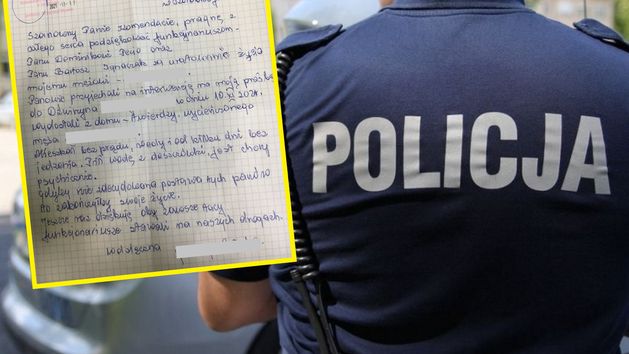 Szanowny Panie Komendancie, pragnę, z
całego serca podziękować funkcjonariuszom -
Panu Dominikowi Rego oraz
Panu Bartosz za uratowanie życia
mojemu mężowi -
Panowie przyjechali na interwencję na moją prośbę
do w dniu 10.XI 2021r.
wydostali z domu - twierdzy, wycieńczonego
męża
Mieszkał bez prądu, wody i od kilku dni bez
jedzenia. Pił wodę z deszczówki, jest chory
psychicznie.
Gdyby nie zdecydowana postawa tych panów
to zakończyłby swoje życie.
Jeszcze raz dziękuję, oby zawsze tacy
funkcjonariusze stawali na naszych drogach.
wdzięczna
POLICJA